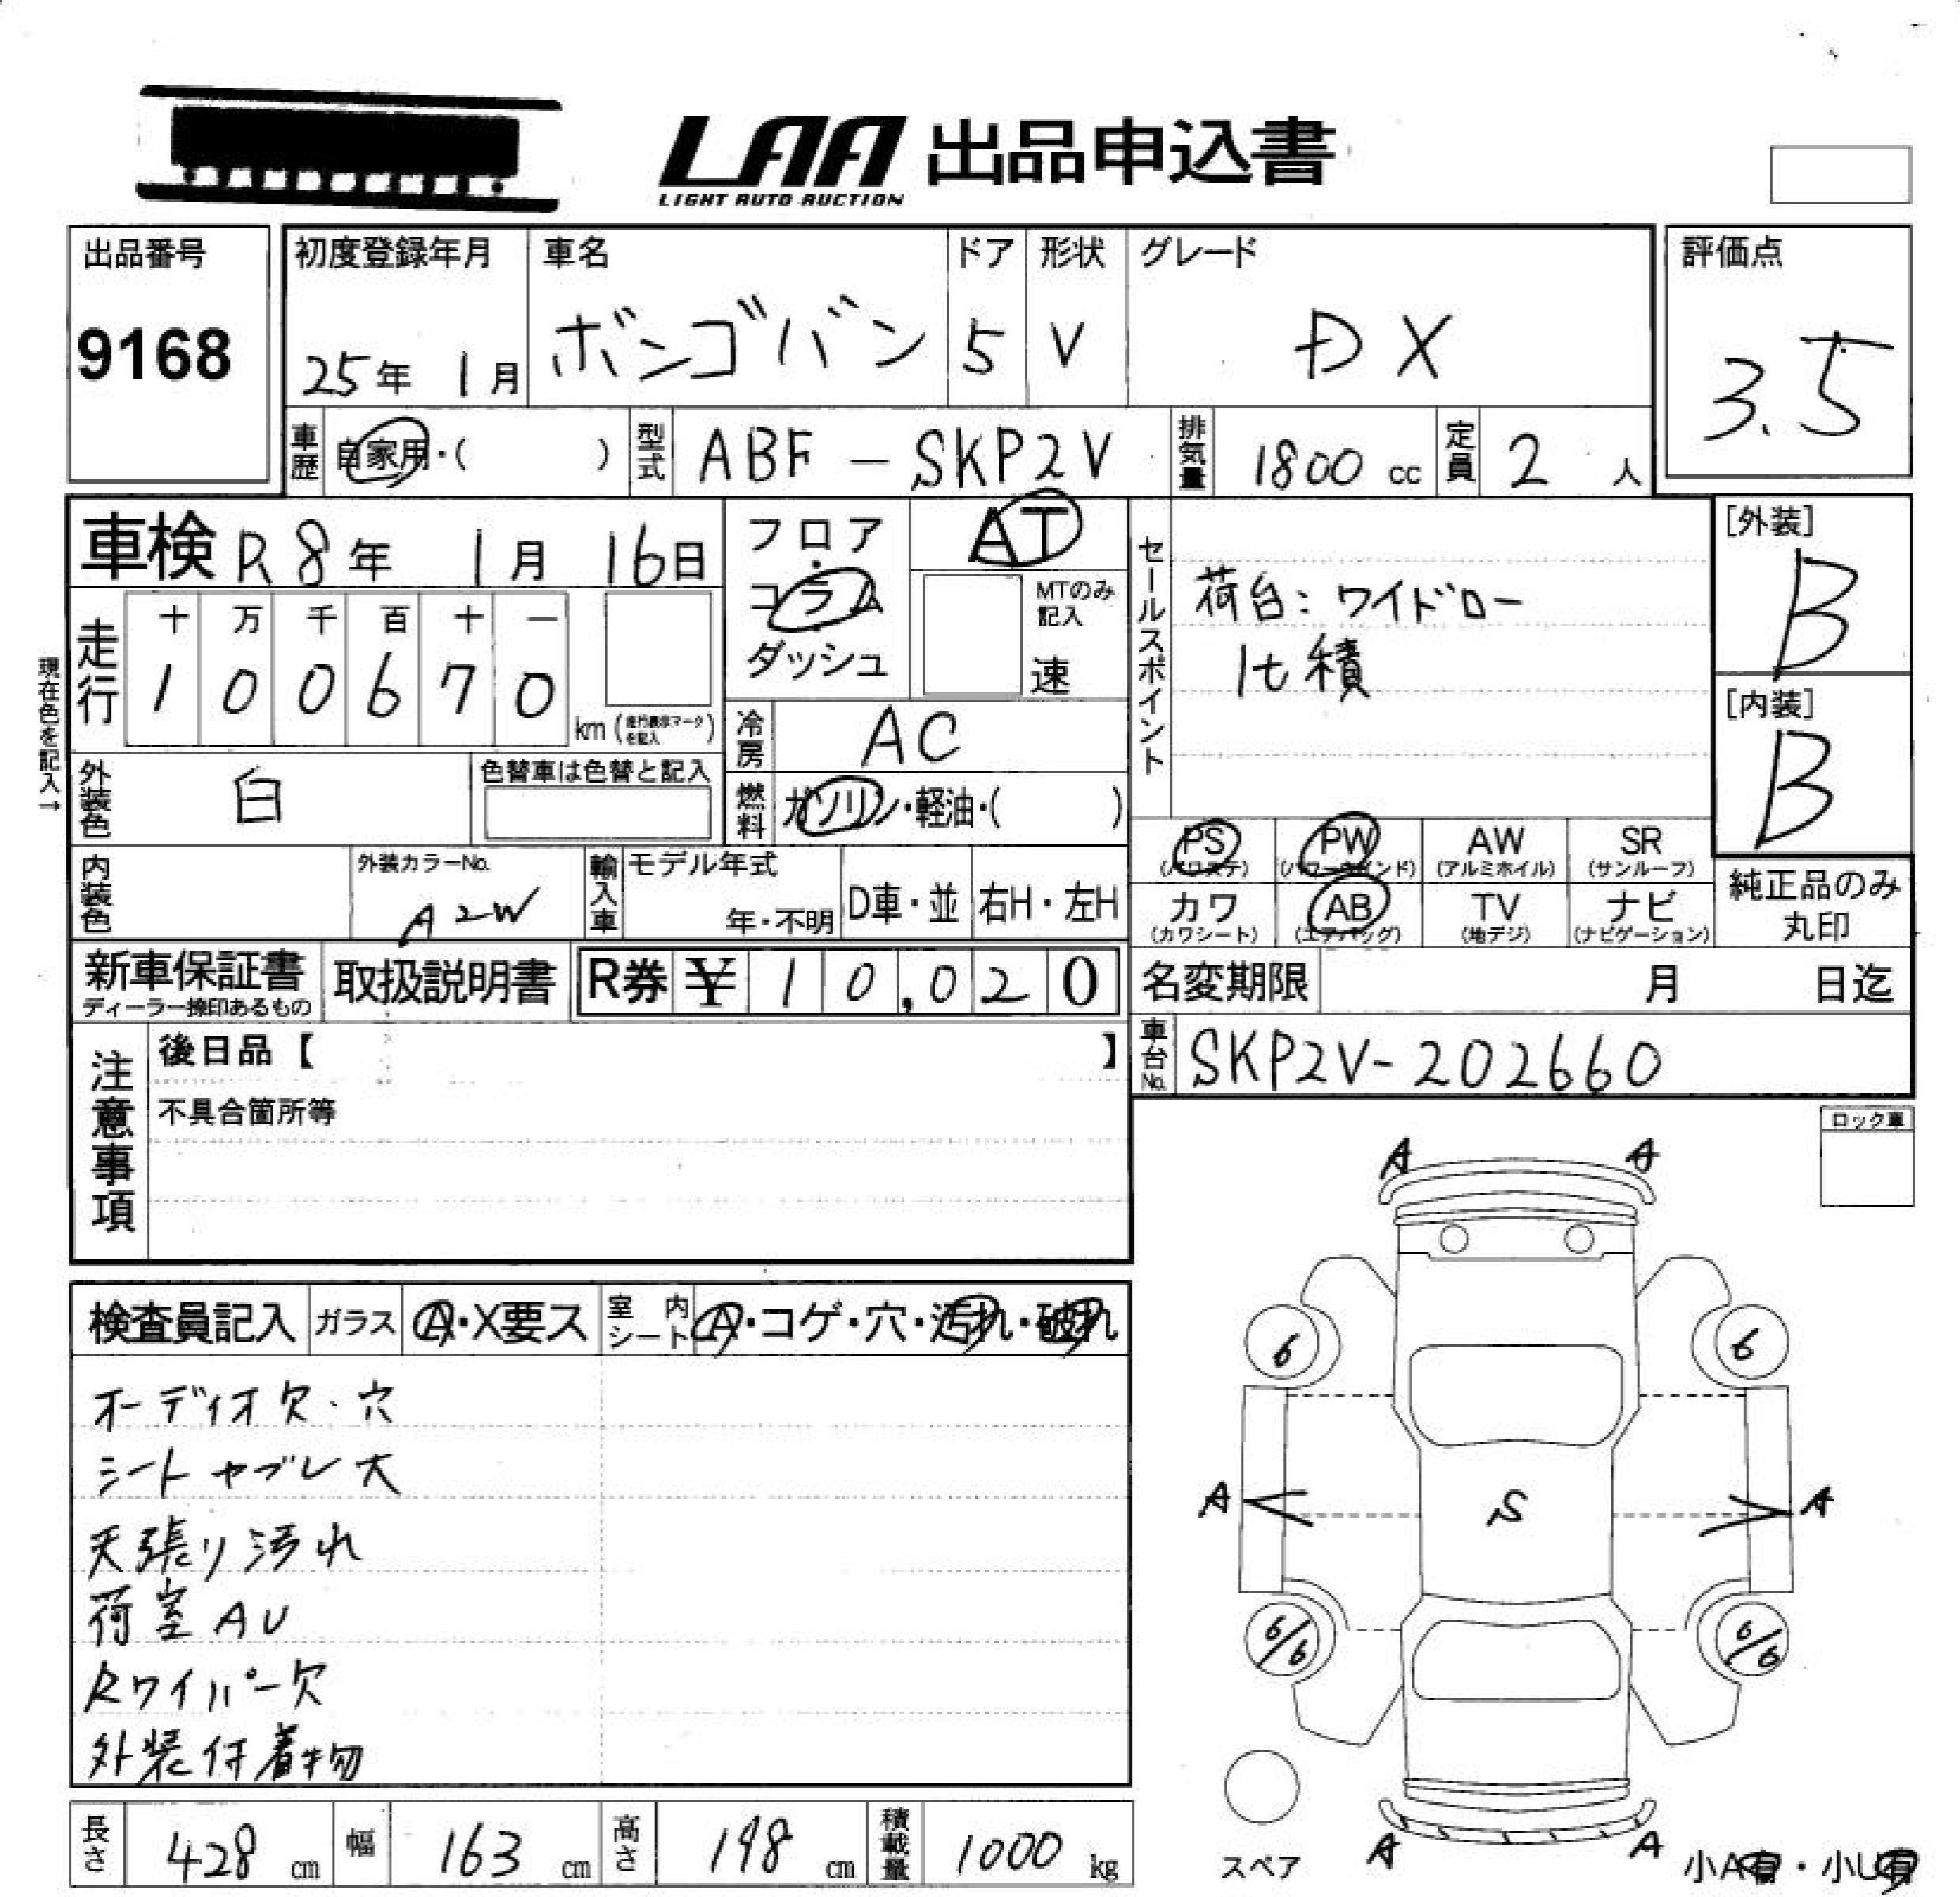 LAA 出品申込書
LIGHT AUTO AUCTION
出品番号
9168
初度登録年月
25年 1月
車名
ボンゴバン
ドア
5
形状
V
グレード
DX
評価点
3.5
車歴
自家用・( )
型式
ABF-SKP2V
排気量
1800 cc
定員
2 人
車検 R8年 1月 16日
フロア・コラム・ダッシュ
AT
MTのみ記入
速
セールスポイント
荷台:ワイドロー
1t積
[外装]
B
[内装]
B
現在色を記入→
走行
十 万 千 百 十 一
1 0 0 6 7 0
km (走行表示マークを記入)
冷房
AC
外装色
白
色替車は色替と記入
燃料
ガソリン・軽油・( )
PS (パワステ)
PW (パワーウインド)
AW (アルミホイル)
SR (サンルーフ)
カワ (カワシート)
AB (エアバッグ)
TV (地デジ)
ナビ (ナビゲーション)
純正品のみ丸印
内装色
外装カラーNo.
A2W
輸入車
モデル年式
年・不明
D車・並
右H・左H
新車保証書
ディーラー捺印あるもの
取扱説明書
R券 ¥ 10,020
名変期限 月 日迄
車台No.
SKP2V-202660
注意事項
後日品【 】
不具合箇所等
ロック車
検査員記入
ガラス
A・X要ス
室内シート
A・コゲ・穴・汚れ・破れ
オーディオ欠・穴
シートヤブレ大
天張り汚れ
荷室AU
Rワイパー欠
外装付着物
A A
6 6
A S A
6/6 6/6
スペア
A A
小A有・小U有
長さ
428 cm
幅
163 cm
高さ
198 cm
積載量
1000 kg